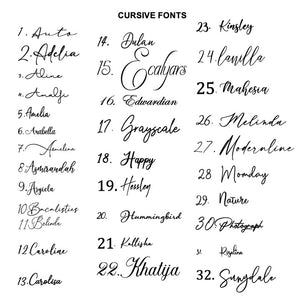 CURSIVE FONTS
1. Auto
2. Adelia
3. Aline
4. Analji
5. Amelia
6. Arabella
7. Amelina
8. Asmirandah
9. Argiela
10. Bacalisties
11. Belinda
12. Caroline
13. Carolisa
14. Dulan
15. Ecalyars
16. Edwardian
17. Grayscale
18. Happy
19. Hossley
20. Hummingbird
21. Kallisha
22. Khatija
23. Kinsley
24. Lavilla
25. Mahesia
26. Melinda
27. Modernline
28. Monday
29. Nature
30. Photograph
31.
32. Sunydale